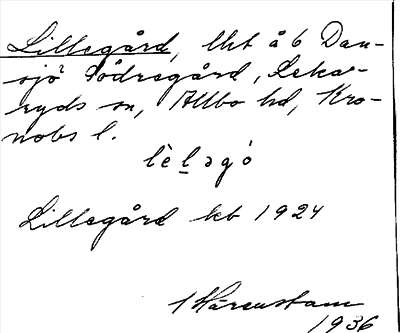 Lillegård, lht å 6 Dan-
sjö Södregård, Leka-
ryds sn, Allbo hd, Kro-
nobs l.
lèl̲əgó
Lillegård kb 1924
Härenstam
1936